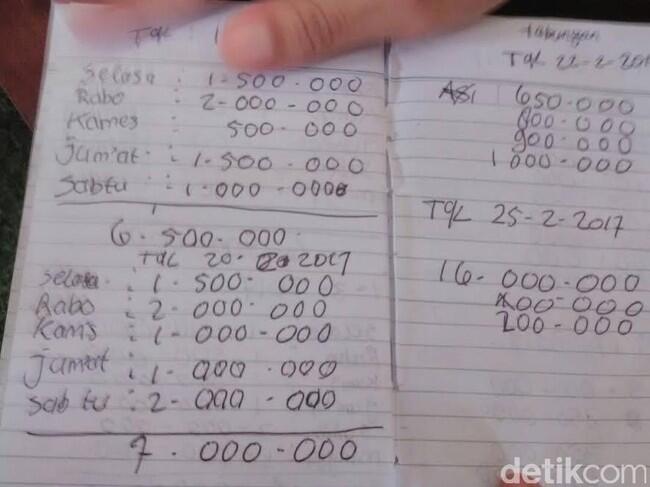 Tgl
Selasa : 1-500-000
Rabo : 2-000-000
Kames 500-000
Jum'at : 1-500-000
Sabtu : 1-000-000
6.500.000
Tgl 20. 2017
Selasa : 1.500.000
Rabo : 2-000.000
Kam's : 1-000-000
Jum'at : 1-000.000
Sabtu : 2-000-000
7.000-000
Tabungan
Tgl 22-2-201
650-000
800-000
900-000
1000-000
Tgl 25-2-2017
16-000-000
00-000
200-000
detikcom